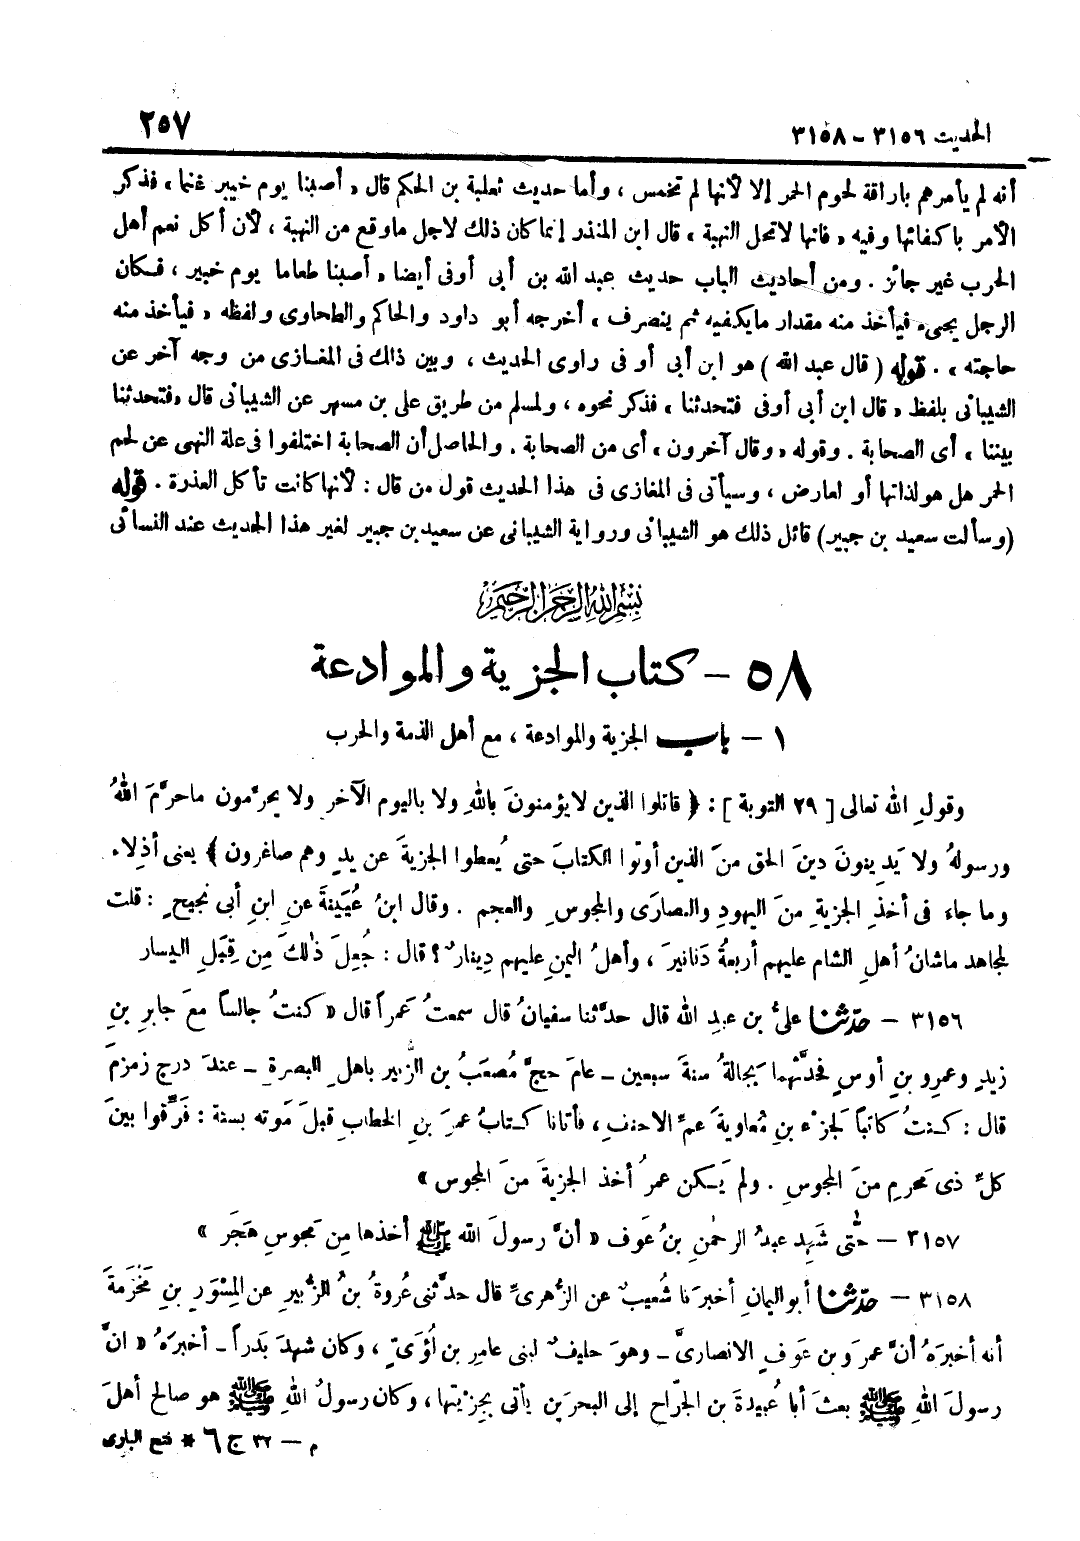 الحديث ٣١٥٦ - ٣١٥٨
٢٥٧
أنه لم يأمرهم باراقة لحوم الحمر إلا لأنها لم تخمس ، وأما حديث ثعلبة بن الحكم قال « أصبنا يوم خيبر غنما » فذكر
الأمر باكفائها وفيه « فانها لاتحل النهبة » قال ابن المنذر إنما كان ذلك لاجل ماوقع من النهبة ، لأن أكل نعم أهل
الحرب غير جائز . ومن أحاديث الباب حديث عبد الله بن أبى أوفى أيضا « أصبنا طعاما يوم خيبر ، فكان
الرجل يجىء فيأخذ منه مقدار مايكفيه ثم ينصرف » أخرجه أبو داود والحاكم والطحاوى ولفظه « فيأخذ منه
حاجته » . قوله ( قال عبد الله ) هو ابن أبى أوفى راوى الحديث ، وبين ذلك فى المغازى من وجه آخر عن
الشيبانى بلفظ « قال ابن أبى أوفى فتحدثنا » فذكر نحوه ، ولمسلم من طريق على بن مسهر عن الشيبانى قال « فتحدثنا
بيننا » أى الصحابة . وقوله « وقال آخرون » أى من الصحابة . والحاصل أن الصحابة اختلفوا فى علة النهى عن لحم
الحمر هل هو لذاتها أو لعارض ، وسيأتى فى المغازى فى هذا الحديث قول من قال : لأنها كانت تأكل العذرة . قوله
(وسألت سعيد بن جبير) قائل ذلك هو الشيبانى ورواية الشيبانى عن سعيد بن جبير لغير هذا الحديث عند النسائى
بسم الله الرحمن الرحيم
٥٨ - كتاب الجزية والموادعة
١ - باب الجزية والموادعة ، مع أهل الذمة والحرب
وقولِ الله تعالى [ ٢٩ التوبة ] : ﴿ قاتلوا الذين لايؤمنونَ باللهِ ولا باليوم الآخر ولا يحرِّمون ماحرَّمَ اللهُ
ورسولهُ ولا يَدِينونَ دينَ الحق منَ الذين أوتوا الكتابَ حتى يُعطوا الجزيةَ عن يدٍ وهم صاغرون ﴾ يعنى أذلاء
وما جاء فى أخذِ الجزية منَ اليهودِ والنصارَى والمجوسِ والعجم . وقال ابنُ عُيَينةَ عنِ ابنِ أبى نجيحٍ : قلت
لمجاهد ماشانُ أهلِ الشام عليهم أربعةُ دَنانيرَ ، وأهلُ اليمنِ عليهم دِينارٌ ؟ قال : جُعِلَ ذٰلكَ مِن قِبَلِ اليسار
٣١٥٦ - حدّثنا علىُّ بن عبدِ الله قال حدَّثنا سفيانُ قال سمعتُ عَمراً قال « كنتُ جالساً معَ جابرِ بنِ
زيدٍ وعمرِو بنِ أوسٍ فحدَّثهما بَجالةُ سنةَ سبعين - عامَ حجَّ مُصعَبُ بن الزُّبير باهلِ البصرةِ - عندَ درجِ زمزمَ
قال : كنتُ كاتباً لجَزْءِ بنِ مُعاويةَ عمِّ الاحنفِ ، فأتانا كتابُ عمرَ بنِ الخطابِ قبلَ مَوته بسنة : فَرِّقوا بينَ
كلِّ ذى مَحرمٍ منَ المجوسِ . ولم يَكن عمرُ أخذ الجزيةَ منَ المجوس »
٣١٥٧ - حتَّى شَهِد عبدُ الرحمٰنِ بنُ عَوف « أنَّ رسولَ الله ﷺ أخذها مِن مَجوسِ هَجَر »
٣١٥٨ - حدّثنا أبو اليمانِ أخبرَنا شُعيبٌ عن الزُّهرىِّ قال حدثنى عُروةُ بنُ الزُّبيرِ عنِ المِسْوَرِ بنِ مَخْرَمةَ
أنه أخبرَهُ أنَّ عمرَو بن عَوفٍ الانصارىَّ - وهوَ حليفٌ لبنى عامرِ بن لُؤَىٍّ ، وكان شهدَ بَدراً - أخبرَهُ « انَّ
رسولَ اللهِ ﷺ بعثَ أبا عُبيدةَ بن الجرّاح إلى البحرَين يأتى بجِزْيتها ، وكان رسولُ اللهِ ﷺ هو صالح أهلَ
م - ٣٢ ج ٦ * فتح البارى